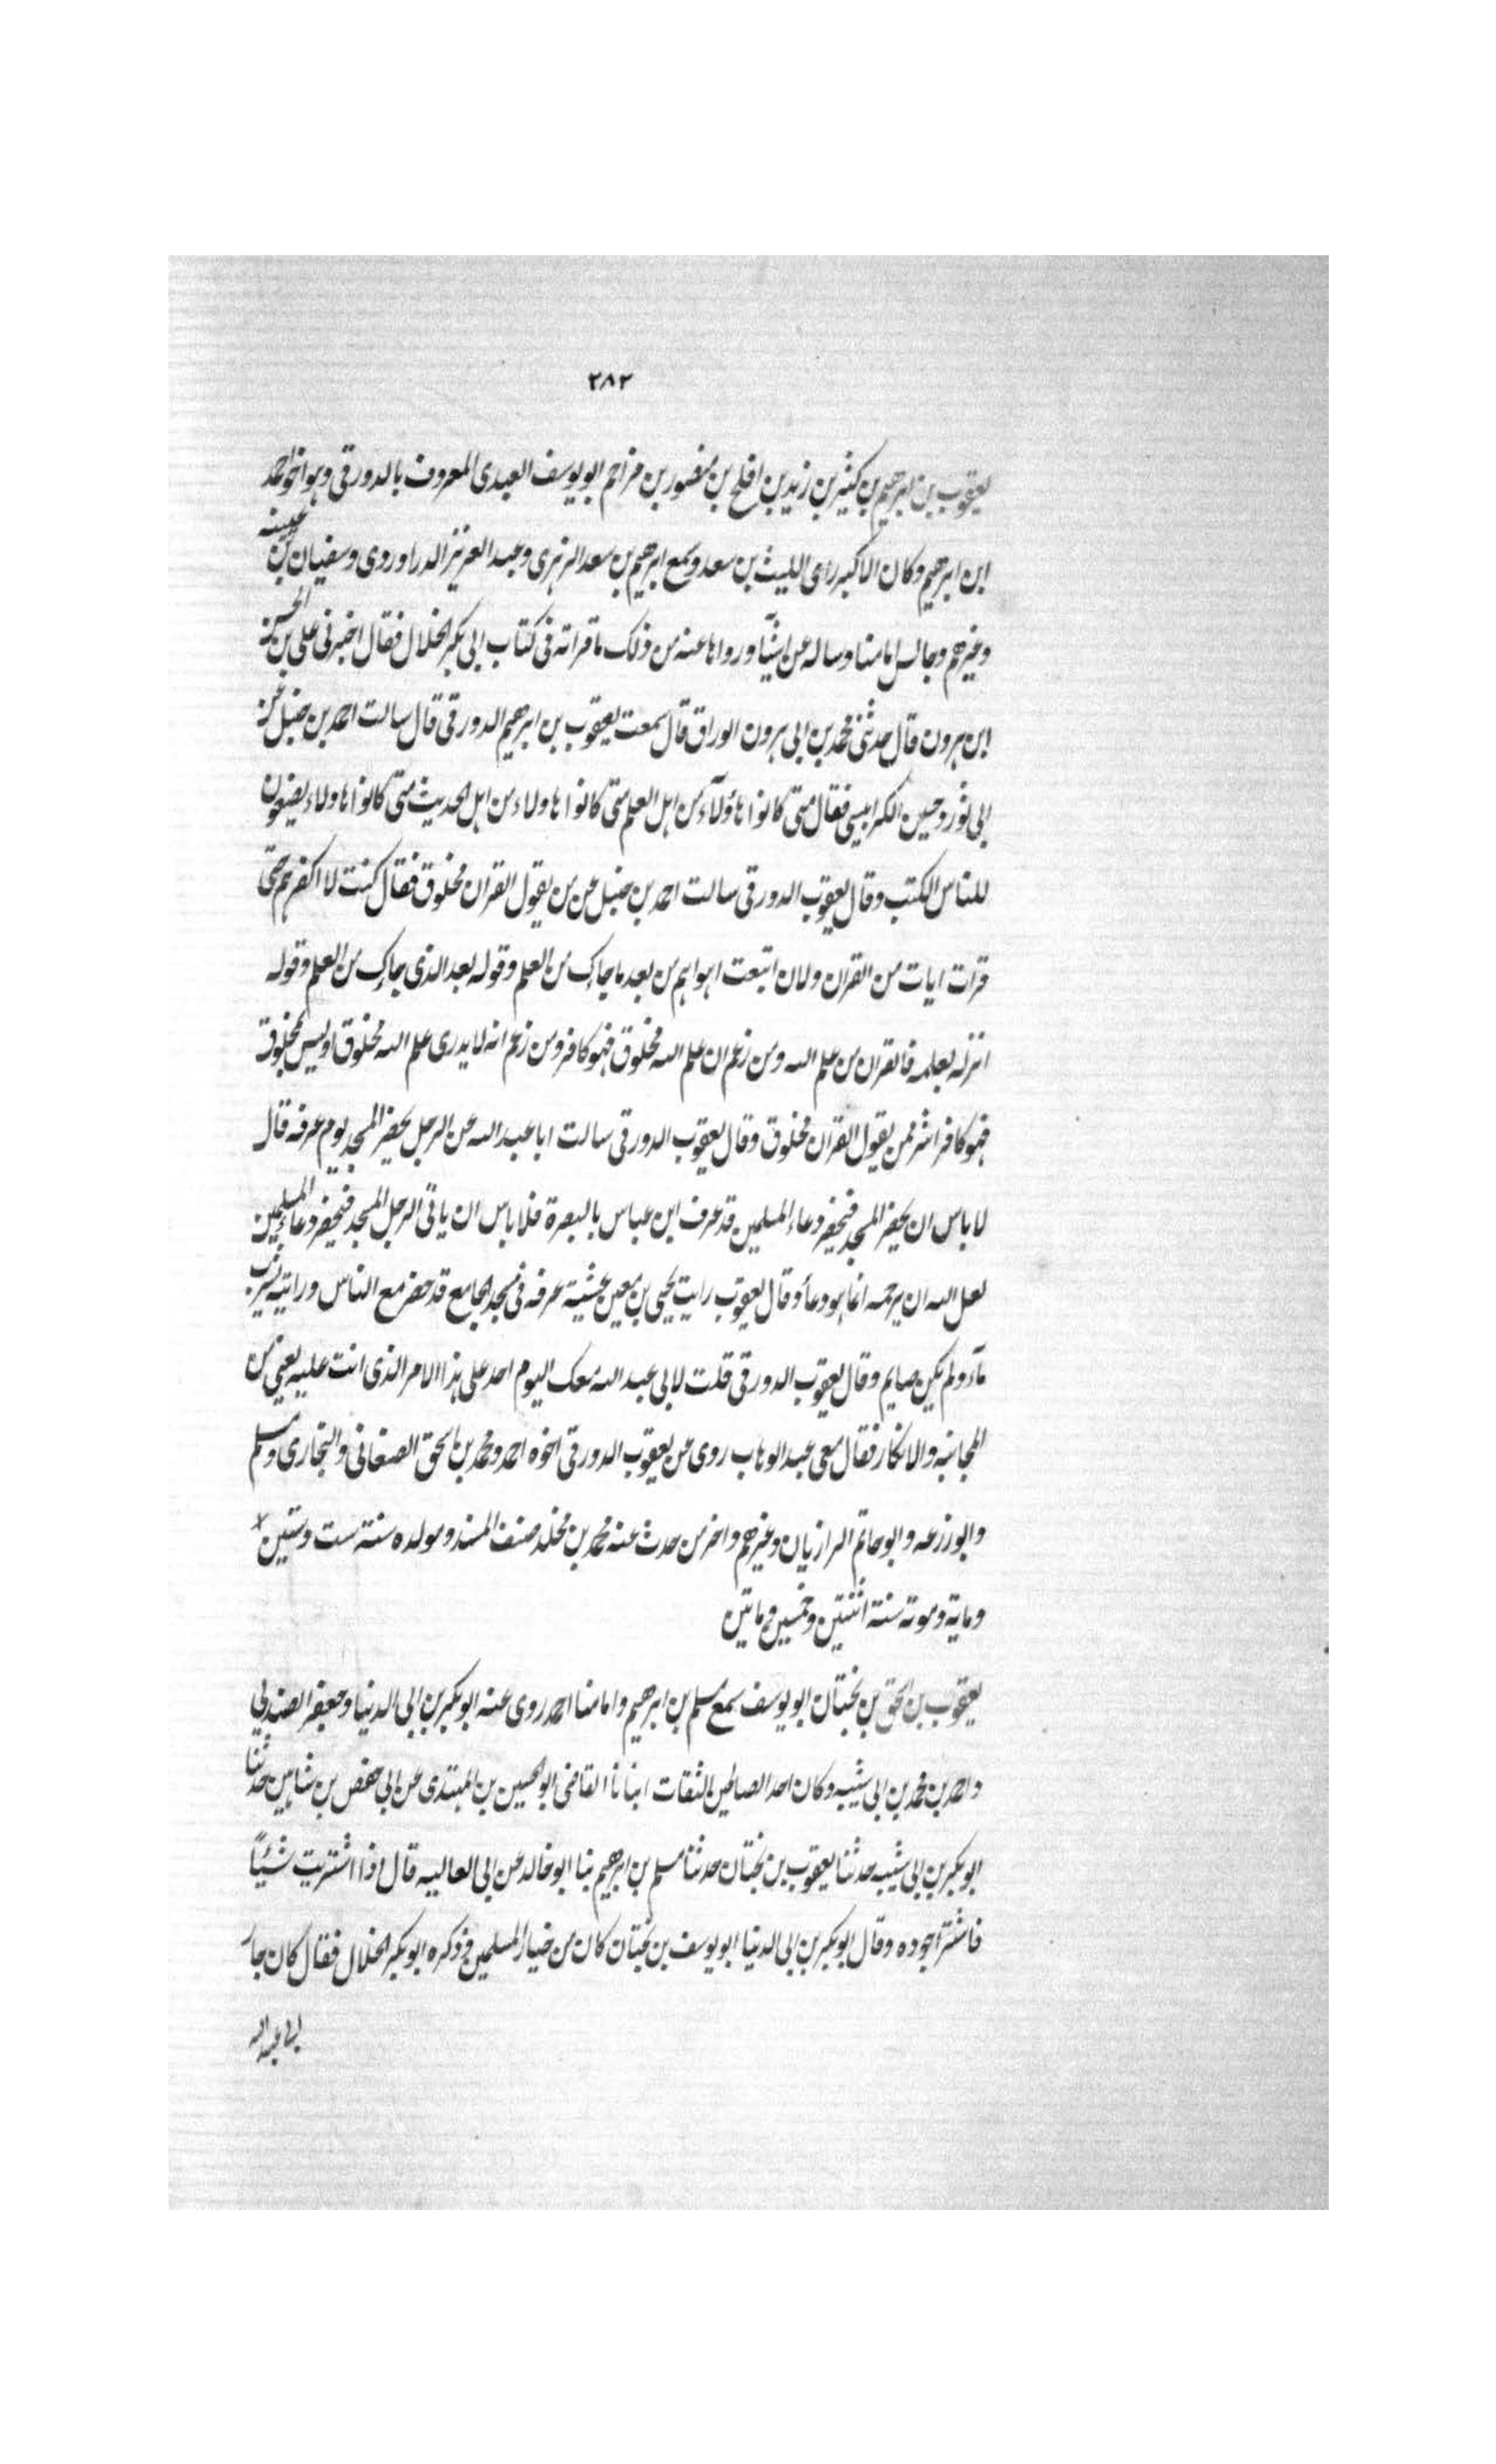 ٢٨٢
يعقوب بن ابرهيم بن كثير بن زيد بن افلح بن منصور بن مزاحم ابو يوسف العبدى المعروف بالدورقى وهو اخو احمد
ابن ابرهيم وكان الاكبر راى الليث بن سعد وسمع ابرهيم بن سعد الزهرى وعبد العزيز الدراوردى وسفيان بن عيينه
وغيرهم وجالس امامنا وساله عن اشيآ ورواها عنه من ذلك ما قراته فى كتاب ابى بكر الخلال فقال اخبرنى على بن الحسن
ابن هرون قال حدثنى محمد بن ابى هرون الوراق قال سمعت يعقوب بن ابرهيم الدورقى قال سالت احمد بن حنبل عن
ابى ثور وحسين الكرابيسى فقال متى كانوا هاؤلآء من اهل العلم متى كانوا هاولاء من اهل الحديث متى كانوا هاولاء يضعون
للناس الكتب وقال يعقوب الدورقى سالت احمد بن حنبل عن من يقول القران مخلوق فقال كنت لا اكفرهم حتى
قرات ايات من القران ولان اتبعت اهواهم من بعد ما جاك من العلم وقوله بعد الذى جاك من العلم وقوله
انزله بعلمه فالقران من علم الله ومن زعم ان علم الله مخلوق فهو كافر ومن زعم انه لا يدرى علم الله مخلوق او ليس بمخلوق
فهو كافر اشر ممن يقول القران مخلوق وقال يعقوب الدورقى سالت ابا عبد الله عن الرجل يحضر المسجد يوم عرفه قال
لا باس ان يحضر المسجد فيحضر دعاء المسلمين قد عرف ابن عباس بالبصرة فلا باس ان ياتى الرجل المسجد فيحضر دعاء المسلمين
لعل الله ان يرحمه انما هو دعأ وقال يعقوب رايت يحيى بن معين عشية عرفه فى مسجد الجامع قد حضر مع الناس ورايته يشرب
مآء ولم يكن صايم وقال يعقوب الدورقى قلت لابى عبد الله معك اليوم احد على هذا الامر الذى انت عليه يعنى من
المجانبه والانكار فقال معى عبد الوهاب روى عن يعقوب الدورقى اخوه احمد ومحمد بن اسحق الصغانى والبخارى ومسلم
وابو زرعه وابو حاتم الرازيان وغيرهم واخر من حدث عنه محمد بن مخلد صنف المسند ومولده سنة ست وستين
وماية وموته سنة اثنتين وخمسين وماتين
يعقوب بن اسحق بن بختان ابو يوسف سمع مسلم بن ابرهيم وامامنا احمد روى عنه ابو بكر بن ابى الدنيا وجعفر الصندلى
واحمد بن محمد بن ابى شيبه وكان احد الصالحين الثقات انبانا القاضى ابو الحسين بن المهتدى عن ابى حفص بن شاهين حدثنا
ابو بكر بن ابى شيبه حدثنا يعقوب بن بختان حدثنا مسلم بن ابرهيم بنا ابو خالد عن ابى العاليه قال اذا اشتريت شيئًا
فاشتر اجوده وقال ابو بكر بن ابى الدنيا ابو يوسف بن بختان كان من خيار المسلمين وذكره ابو بكر الخلال فقال كان جار
ابى عبد الله